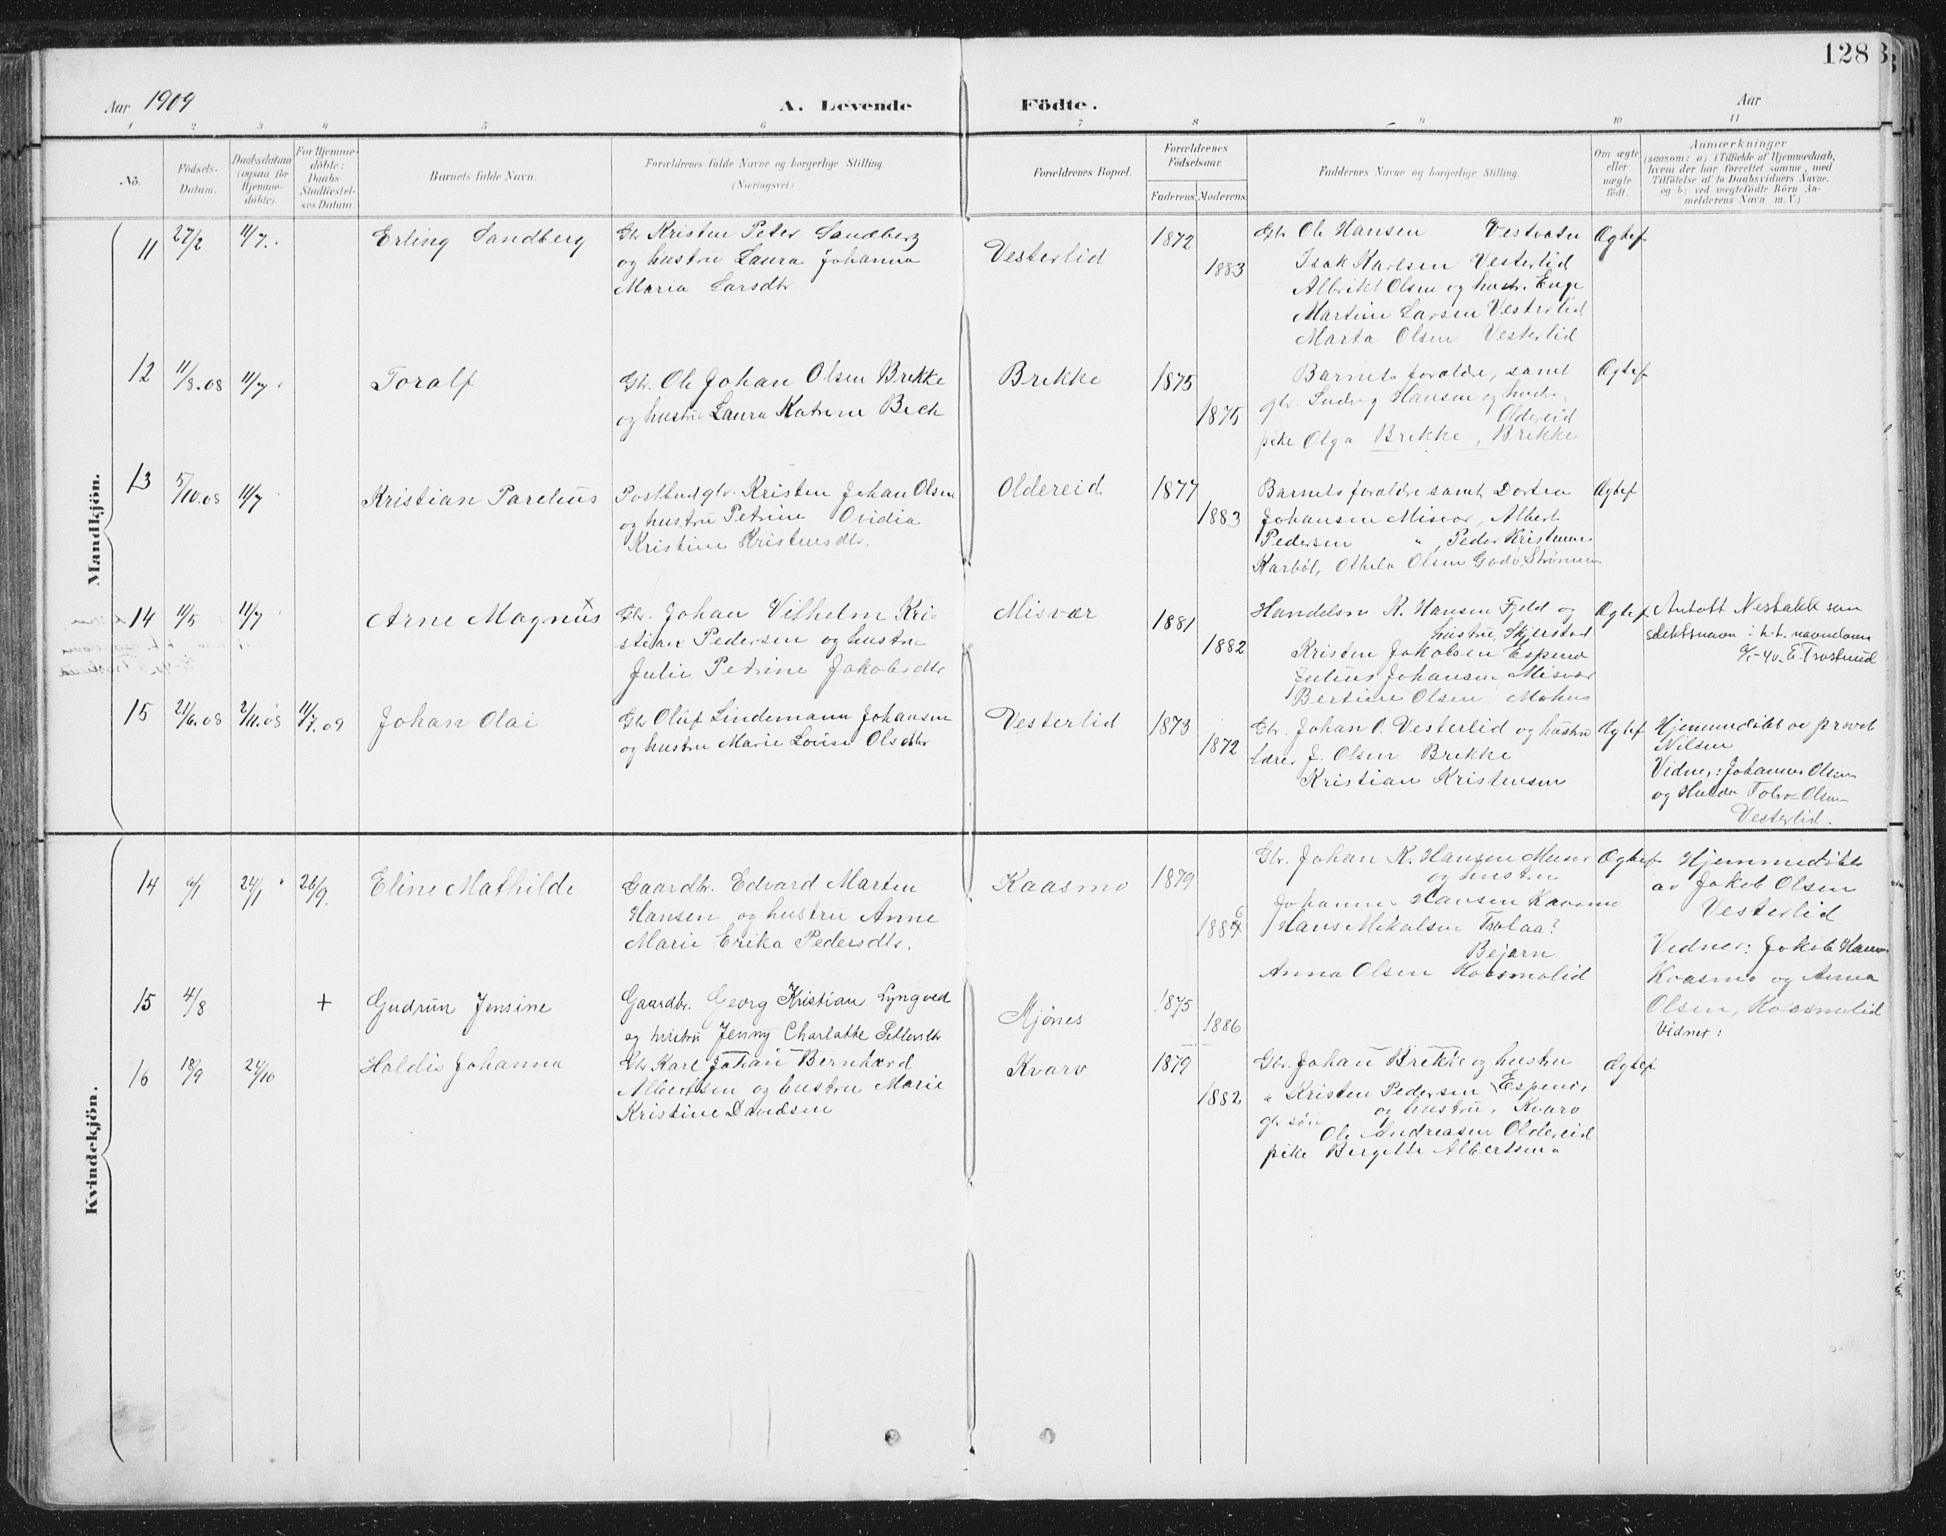 128
Aar 1909
A. Levende Födte.
Aar
1 2 3 4 5 6 7 8 9 10 11
No.
Födsels-Datum.
Daabsdatum (ogsaa for Hjemme-döbte).
For Hjemme-döbte: Daabs-Stadfæstel-ses Datum.
Barnets fulde Navn.
Forældrenes fulde Navne og borgerlige Stilling.
(Næringsvei)
Forældrenes Bopæl.
Forældrenes Födselsaar.
Faderens. Moderens.
Faddernes Navne og borgerlige Stilling.
Om ægte eller uægte födt.
Anmærkninger
(saasom: a) i Tilfælde af Hjemmedaab,
hvem der har forrettet samme, med
Tilföielse af to Daabsvidners Navne.
og b) ved uægtefödte Börn An-
melderens Navn m. V.)
Mandkjön.
11 27/2 11/7. Erling Sandberg
Gbr Kristen Peter Sandberg
og hustru Laura Johanna
Maria Larsdtr
Vesterlid 1872 1883
Gbr Ole Hansen Vestvatn
Isak Karlsen Vesterlid
Albrikt Olsen og hustr. Enge
Martine Larsen Vesterlid
Marta Olsen Vesterlid
Ægtef
12 11/8.08 11/7 Toralf
Gbr. Ole Johan Olsen Brekke
og hustru Laura Katrine Bech
Brekke 1875 1875
Barnets forældre, samt
gbr. Ludvig Hansen og hustr.
Oldereid
pike Olga Brekke, Brekke
Ægtef
13 5/10.08 11/7 Kristian Parelius
Postbud gbr. Kristen Johan Olsen
og hustru Petrine Ovidia
Kristine Kristensdtr.
Oldereid 1877 1883
Barnets forældre samt Dortea
Johansen Misvær, Albert
Pedersen " , Peder Kristensen
Karbøl, Othela Olsen Godø, Strømsnes
Ægtef
14 11/5 11/7 Arne Magnus x
Gbr. Johan Vilhelm Kri-
stian Pedersen og hustru
Julie Petrine Jakobsdtr
Misvær 1881 1882
Handelsm K. Hansen Fjeld og
hustru, Skjerstad
Kristen Jakobsen Espenes
Julius Johansen Misvær
Bertine Olsen Mohus
Ægtef
Antatt Nestakk som
slektsnavn i h.t. navneloven
E. Trostrud
15 21/6.08 2/11.08 11/7.09 Johan Olai
Gbr Oluf Lindemann Johansen
og hustru Marie Louise Olsdtr
Vesterlid 1873 1872
Gbr. Johan O. Vesterlid og hustru
lærer J. Olsen Brekke
Kristian Kristensen
Ægtef
Hjemmedøbt av provst
Nilsen
Vidner: Johannes Olsen
og Hulda Olsen
Vesterlid.
Kvindekjön.
14 6/1 24/1 26/9. Eline Mathilde
Gaardbr. Edvard Marten
Hansen og hustru Anne
Marie Erika Pedersdtr.
Kaasmo 1879 1886
Gbr. Johan K. Hansen Misvær
og hustru
Johannes Hansen Kaasmo
Hans Mikalsen Tolaa?
Bejarn
Anna Olsen Kaasmolid
Ægtef
Hjemmedøbt
av Jakob Olsen
Vesterlid
Vidner: Jakob Hansen
Kaasmo og Anna
Olsen, Kaasmolid
Vidner:
15 4/8 + Gudrun Jensine
Gaardbr. Georg Kristian Lyngved
og hustru Jenny Charlotte Pettersdtr
Mjønes 1875 1886
16 18/9 24/10 Haldis Johanna
Gbr Karl Johan Bernhard
Albertsen og hustru Marie
Kristine Davidsen
Kvarv 1879 1882
Gbr. Johan Brekke og hustru
" Kristen Pedersen Espenes
og hustru, Kvarv
gbr søn Ole Andreasen Oldereid
pike Bergitte Albertsen
Ægtef